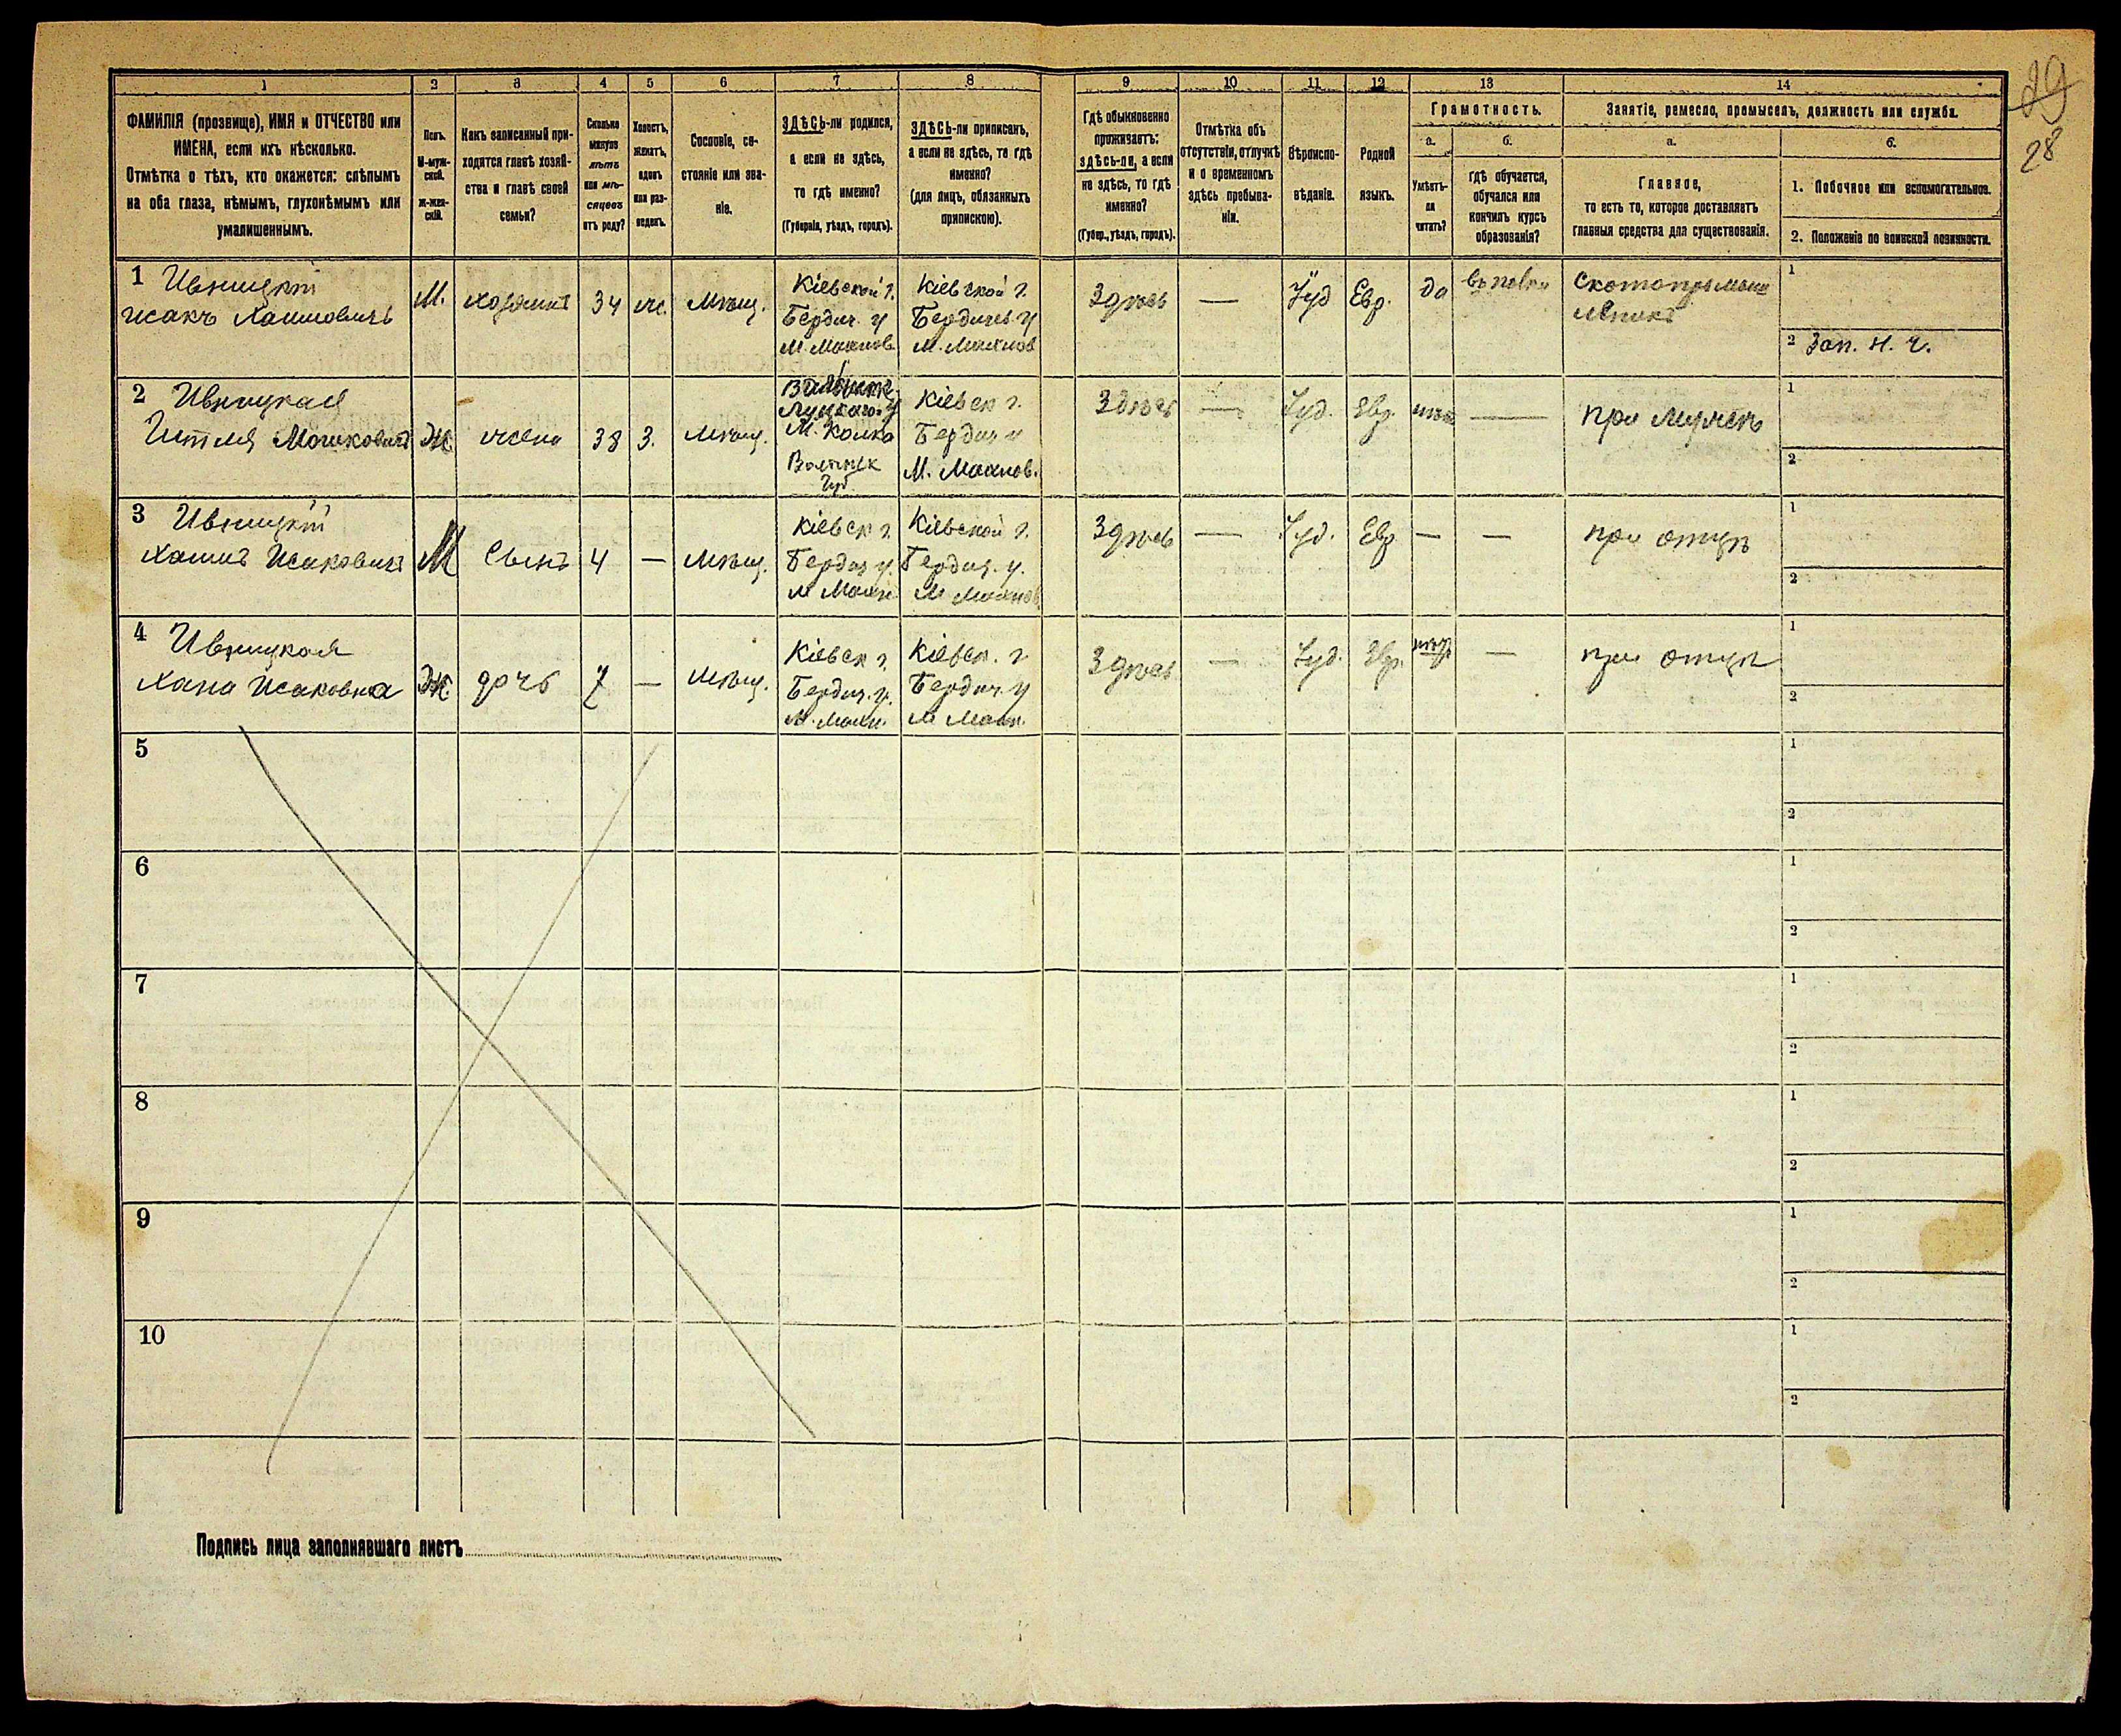 29
28
1
2
3
4
5
6
7
8
9
10
11
12
13
14
ФАМИЛІЯ (прозвище), ИМЯ и ОТЧЕСТВО или
ИМЕНА, если ихъ нѣсколько.
Отмѣтка о тѣхъ, кто окажется: слѣпымъ
на оба глаза, нѣмымъ, глухонѣмымъ или
умалишеннымъ.
Полъ.
М-муж-
ской.
Ж-жен-
скій.
Какъ записанный при-
ходится главѣ хозяй-
ства и главѣ своей
семьи?
Сколько
минуло
лѣтъ
или мѣ-
сяцевъ
отъ роду?
Холостъ,
женатъ,
вдовъ
или раз-
веденъ.
Сословіе, со-
стояніе или зва-
ніе.
ЗДѢСЬ-ли родился,
а если не здѣсь,
то гдѣ именно?
(Губернія, уѣздъ, городъ).
ЗДѢСЬ-ли приписанъ,
а если не здѣсь, то гдѣ
именно?
(для лицъ, обязанныхъ
припискою).
Гдѣ обыкновенно
проживаетъ:
здѣсь-ли, а если
не здѣсь, то гдѣ
именно?
(Губер., уѣздъ, городъ).
Отмѣтка объ
отсутствіи, отлучкѣ
и о временномъ
здѣсь пребыва-
ніи.
Вѣроиспо-
вѣданіе.
Родной
языкъ.
Грамотность.
а.
Умѣетъ-
ли
читать?
б.
гдѣ обучается,
обучался или
кончилъ курсъ
образованія?
Занятіе, ремесло, промыселъ, должность или служба.
а.
Главное,
то есть то, которое доставляетъ
главныя средства для существованія.
б.
1. Побочное или вспомогательное.
2. Положеніе по воинской повинности.
1 Ивницкій
Исакъ Хаимовичъ
М.
хозяинъ
34
ж.
Мѣщ.
Кіевской г.
Бердич. у
М. Махнов
Кіевской г.
Бердичев. у
М. Махнов
Здѣсь
—
Іуд
Евр.
да
Скотопромыш
леникъ
1
2 Зап. н. ч.
2 Ивницкая
Мошковна
Ж.
жена
38
З.
Мѣщ.
Луцкаго у
М. Колко
Волынск
Губ
Кіевск г.
Бердич у
М. Махнов.
Здѣсь
—
Іуд.
Евр.
нѣт
—
при мужѣ
1
2
3 Ивницкій
Хаимъ Исаковичъ
М
Сынъ
4
—
Мѣщ.
Кіевск г.
Бердич у.
М Махн
Кіевской г.
Бердич. у.
М Махнов
Здѣсь
—
Іуд.
Евр
—
—
при отцѣ
1
2
4 Ивницкая
Хана Исаковна
Ж.
дочь
7
—
Мѣщ.
Кіевск г.
Бердич. у.
М. Махн.
Кіевск. г
Бердич. у
М Махн.
Здѣсь
—
Іуд.
Евр.
—
при отцѣ
1
2
5
1
2
6
1
2
7
1
2
8
1
2
9
1
2
10
1
2
Подпись лица заполнявшаго листъ